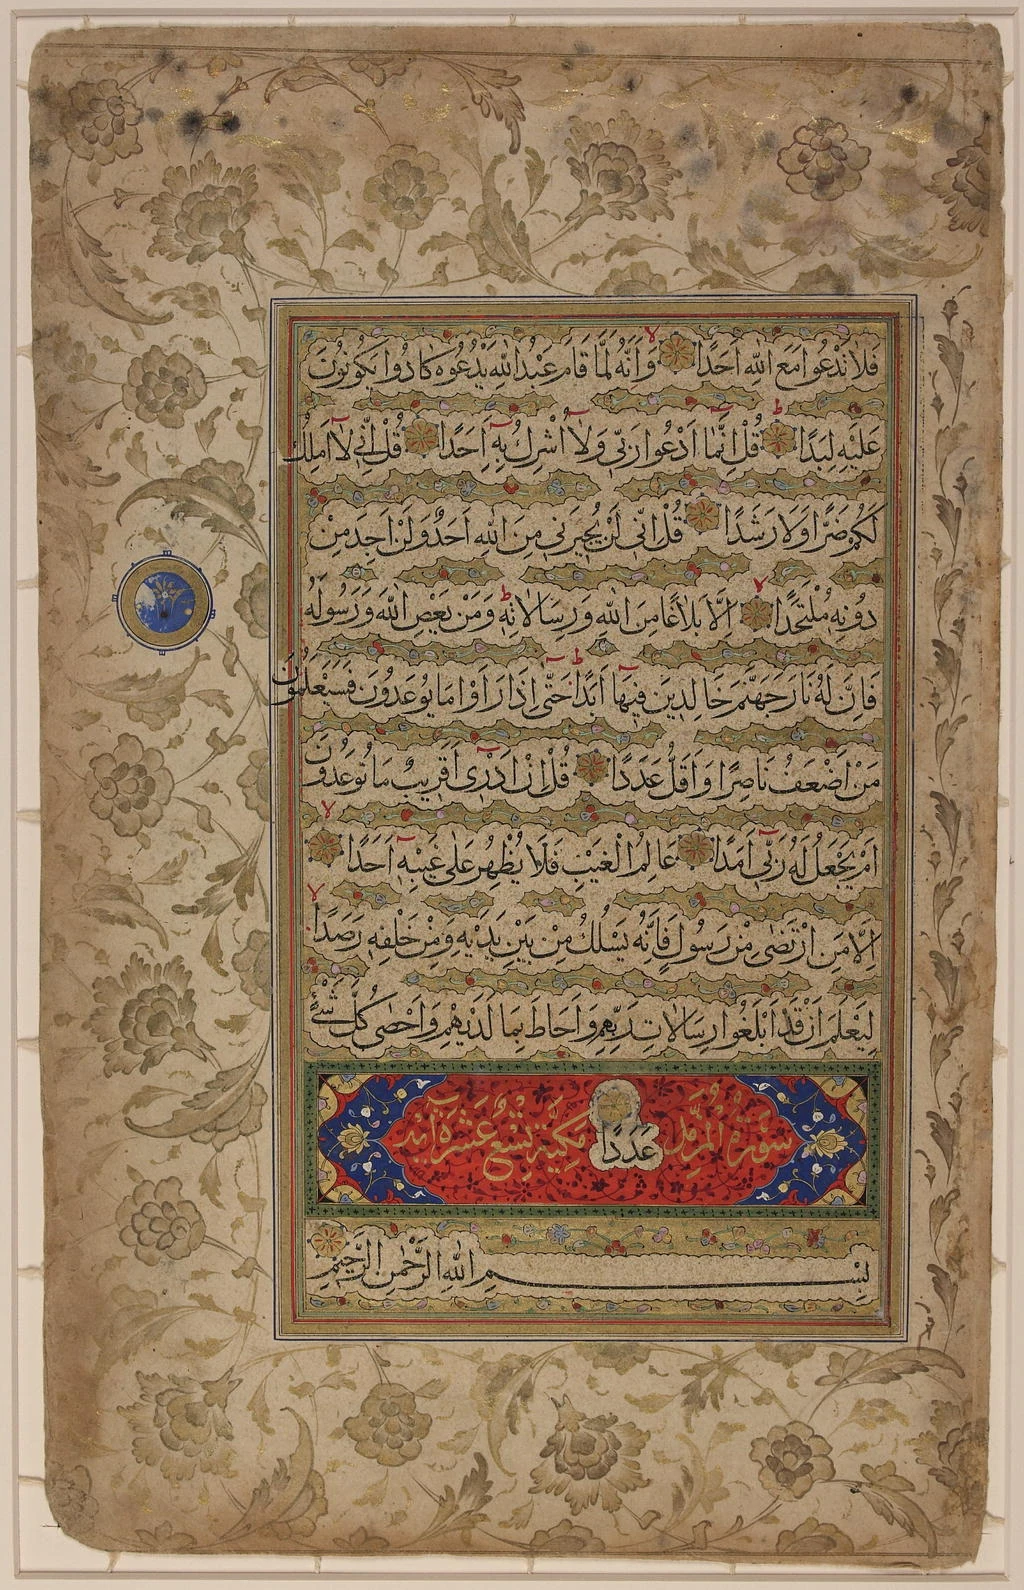 فَلَا تَدْعُوا مَعَ اللّٰهِ اَحَدًا وَاَنَّهُ لَمَّا قَامَ عَبْدُ اللّٰهِ يَدْعُوهُ كَادُوا يَكُونُونَ
عَلَيْهِ لِبَدًا قُلْ اِنَّمَا اَدْعُوا رَبِّى وَلَا اُشْرِكُ بِهِ اَحَدًا قُلْ اِنِّى لَا اَمْلِكُ
لَكُمْ ضَرًّا وَلَا رَشَدًا قُلْ اِنِّى لَنْ يُجِيرَنِى مِنَ اللّٰهِ اَحَدٌ وَلَنْ اَجِدَ مِنْ
دُونِهِ مُلْتَحَدًا اِلَّا بَلَاغًا مِنَ اللّٰهِ وَرِسَالَاتِهِ وَمَنْ يَعْصِ اللّٰهَ وَرَسُولَهُ
فَاِنَّ لَهُ نَارَ جَهَنَّمَ خَالِدِينَ فِيهَا اَبَدًا حَتّٰى اِذَا رَاَوْا مَا يُوعَدُونَ فَسَيَعْلَمُونَ
مَنْ اَضْعَفُ نَاصِرًا وَاَقَلُّ عَدَدًا قُلْ اِنْ اَدْرِى اَقَرِيبٌ مَا تُوعَدُونَ
اَمْ يَجْعَلُ لَهُ رَبِّى اَمَدًا عَالِمُ الْغَيْبِ فَلَا يُظْهِرُ عَلٰى غَيْبِهِ اَحَدًا
اِلَّا مَنِ ارْتَضٰى مِنْ رَسُولٍ فَاِنَّهُ يَسْلُكُ مِنْ بَيْنِ يَدَيْهِ وَمِنْ خَلْفِهِ رَصَدًا
لِيَعْلَمَ اَنْ قَدْ اَبْلَغُوا رِسَالَاتِ رَبِّهِمْ وَاَحَاطَ بِمَا لَدَيْهِمْ وَاَحْصٰى كُلَّ شَىْءٍ
سُورَةُ الْمُزَّمِّلِ عَدَدًا مَكِّيَّةٌ تِسْعَ عَشْرَةَ آيَة
بِسْمِ اللّٰهِ الرَّحْمٰنِ الرَّحِيمِ